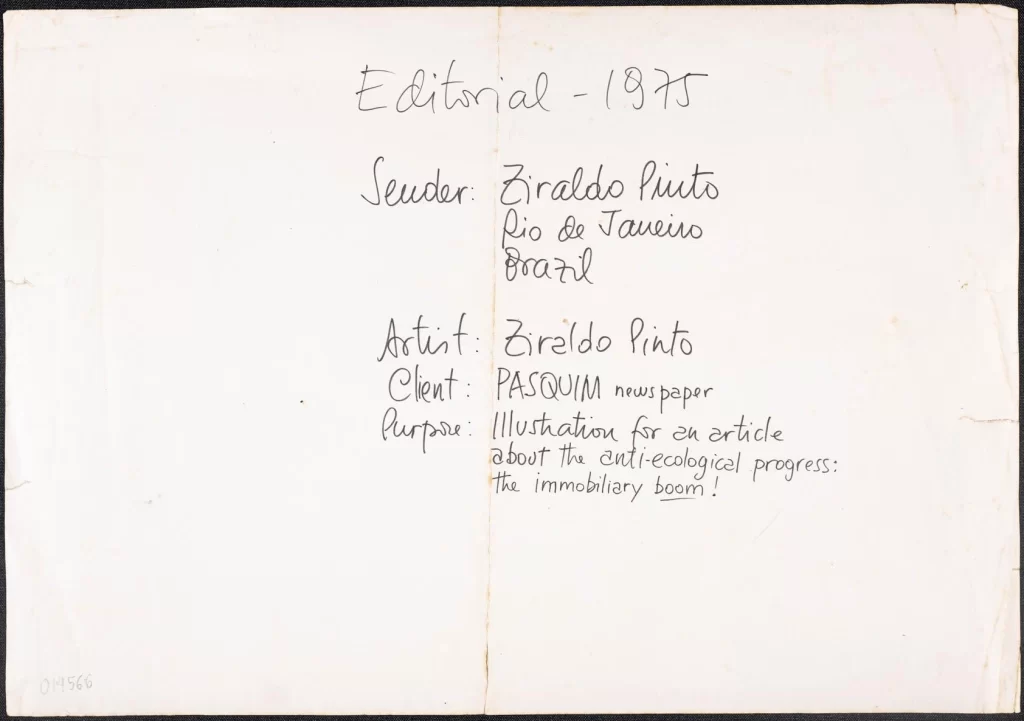 Editorial - 1975
Sender: Ziraldo Pinto
Rio de Janeiro
Brazil
Artist: Ziraldo Pinto
Client: PASQUIM newspaper
Purpose: Illustration for an article
about the anti-ecological progress:
the immobiliary boom!
014566